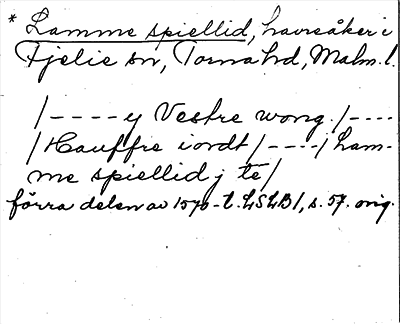 * Lamme spiellid, havreåker i
Fjelie sn, Torna hd, Malm. l.
/----y Vestre wong./----
/Hauffre iordt/----/Lam-
me spiellid j te/
förra delen av 1570-t. LSLB1, s. 57. orig.